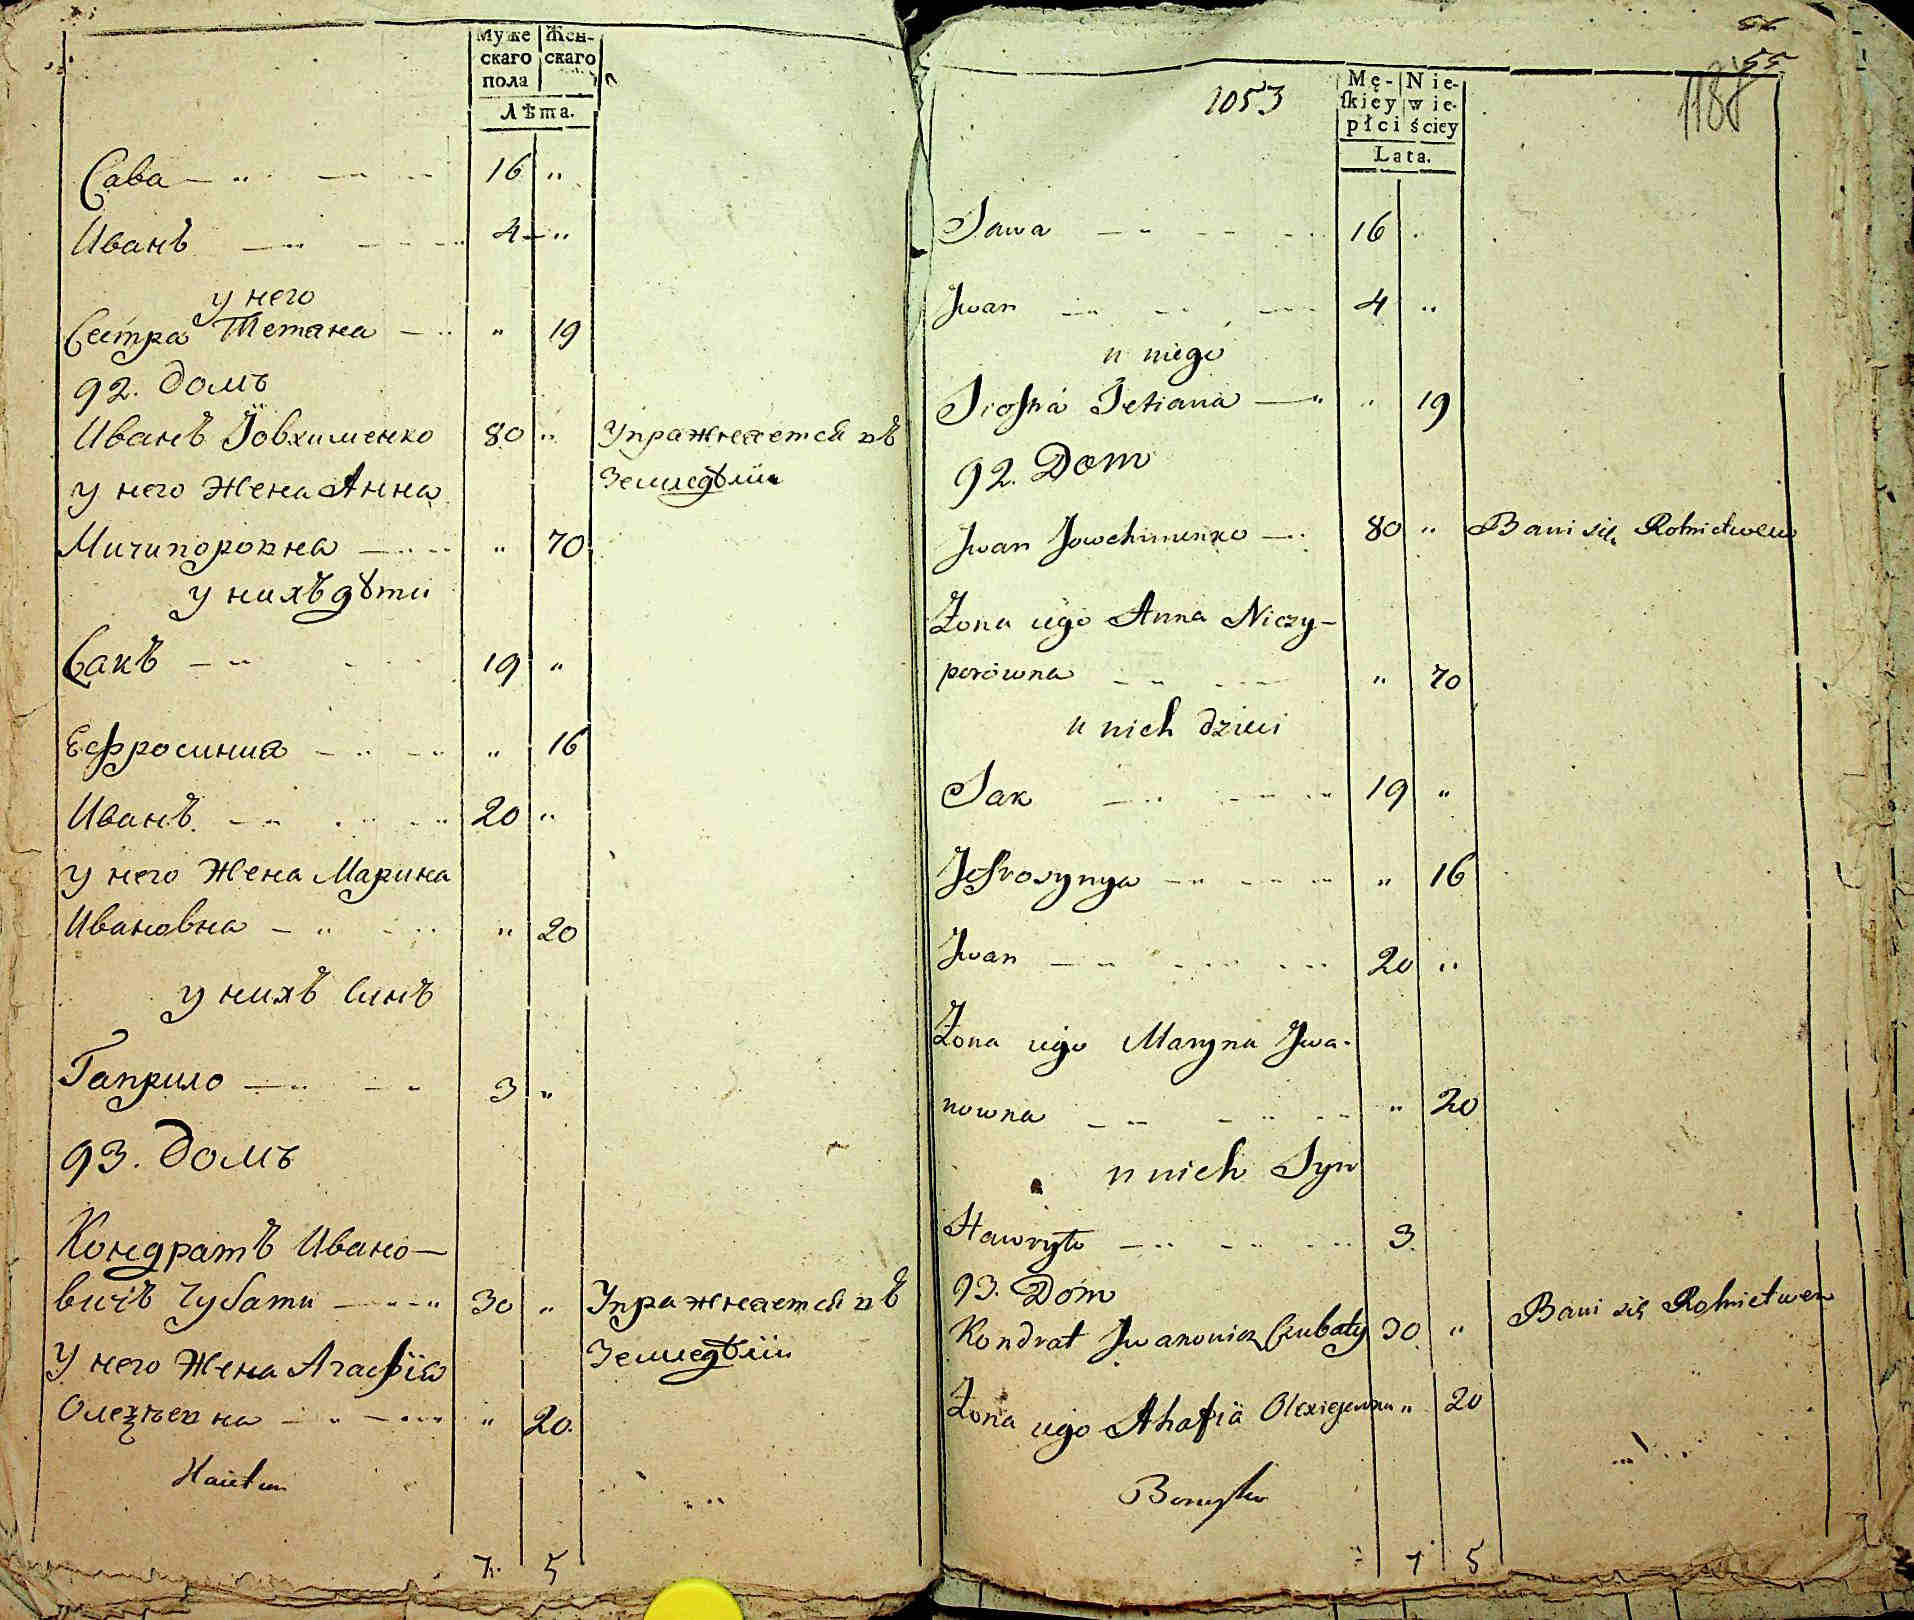 Муже Жен-
скаго скаго
пола
Лѣта.
Сава 16 "
Иванъ 4 "
у него
Сестра Тетяна " 19
92. Домъ
Иванъ Їовхименко 80 " Упражняется въ
у него Жена Анна Земледѣлїи
Мичипоровна " 70
у нихъ дѣти
Сакъ 19 "
Ефросиния " 16
Иванъ 20 "
у него Жена Марина
Ивановна " 20
у нихъ Синъ
Гаврило 3 "
93. Домъ
Кондратъ Ивано-
вичъ Чубати 30 " Упражняется въ
У него Жена Агафїя Земледѣлїи
Олеѯѣевна " 20.
7. 5
55
1053
118
Mę- Nie-
ſkiey wie-
płci ściey
Lata.
Sawa 16
Jwan 4 "
u niego
Siostra Tetiana " 19
92. Dom
Jwan Jowchimenko 80 " Bawi się Rolnictwem
Żona iego Anna Niczy-
porowna " 70
u nich dzieci
Sak 19 "
Jefrosynya " 16
Jwan 20 "
Żona iego Maryna Jwa-
nowna " 20
u nich Syn
Hawryło 3.
93. Dom
Kondrat Jwanowicz Czubaty 30 " Bawi się Rolnictwem
Żona iego Ahafiä Olexiejewna " 20
7 5